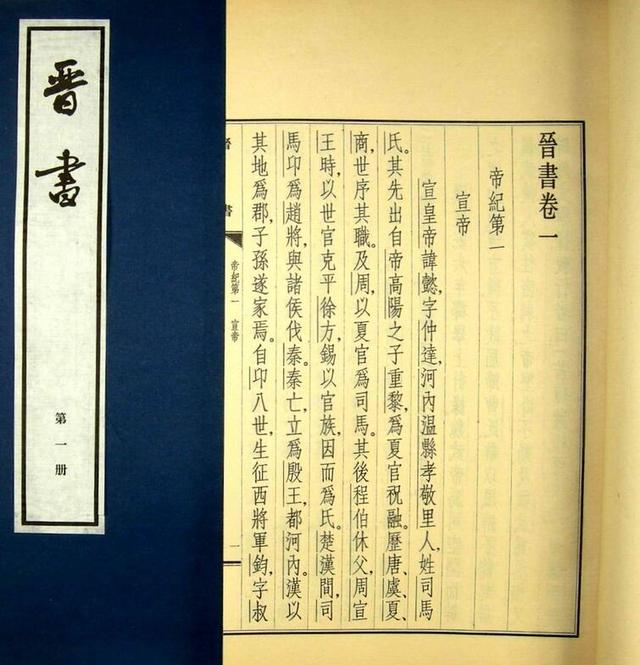 晋書
第一册
晉書卷一
帝紀第一
宣帝
宣皇帝諱懿,字仲達,河內溫縣孝敬里人,姓司馬
氏。其先出自帝高陽之子重黎,爲夏官祝融。歷唐、虞、夏、
商,世序其職。及周,以夏官爲司馬。其後程伯休父,周宣
王時,以世官克平徐方,錫以官族,因而爲氏。楚漢間,司
馬卬爲趙將,與諸侯伐秦。秦亡,立爲殷王,都河內。漢以
其地爲郡,子孫遂家焉。自卬八世,生征西將軍鈞,字叔
帝紀第一 宣帝
一